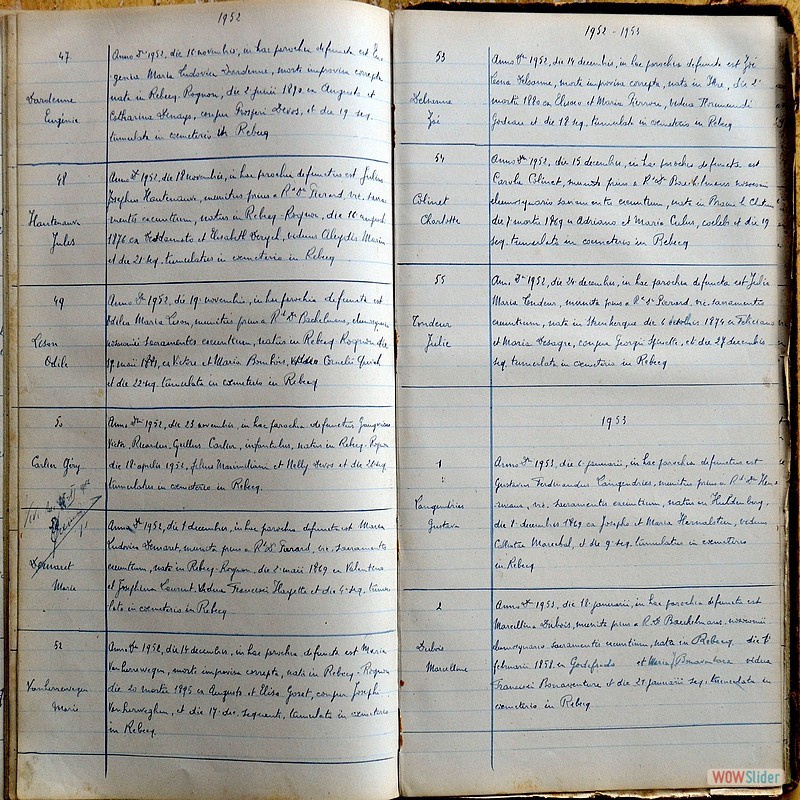 1952
47
Dardenne
Eugénie
Anno Dni 1952, die 16 novembris, in hac parochia defuncta est Eu-
genia Maria Ludovica Dardenne, morte improvisa correpta
nata in Rebecq-Rognon, die 2 junii 1870 ex Augusto et
Catharina conjux Prosperi Devos, et die 19 seq.
tumulata in cœmeterio in Rebecq
48
Hautenauve
Jules
Anno Dni 1952, die 18 novembris, in hac parochia defunctus est Julius
Josephus Hautenauve, munitus prius a Rdo Do Pierard, vic. sacra-
mentis exeuntium, natus in Rebecq-Rognon, die 16 august
1876 ex et Elisabeth viduus Aleydis Maria
et die 21 seq. tumulatus in cœmeterio in Rebecq
49
Leson
Odile
Anno Dni 1952, die 19 novembris, in hac parochia defuncta est
Odilia Maria Leson, munitus prius a Rdo Do Backelmans,
sacramentis exeuntium, natus in Rebecq Rognon die
19 maii ex Victore et Maria vidua Cornelii
et die 22 seq. tumulata in cœmeterio in Rebecq
50
Carlier Géry
Anno Dni 1952, die 23 novembris, in hac parochia defunctus
Victor, Ricardus, Carlier, infantulus, natus in Rebecq-Rognon
die 18 aprilis 1952, filius Maximiliani et Nelly Devos et die
tumulatus in cœmeterio in Rebecq.
Demaret
Marie
Anno Dni 1952, die 1 decembris, in hac parochia defuncta est Maria
Ludovica Demaret, munita prius a Rdo Do Pierard, vic. sacramentis
exeuntium, nata in Rebecq-Rognon, die 2 maii 1869 ex Valentino
et Josephina Laurent. Vidua Francisci Hayette et die 4 seq. tumu-
lata in cœmeterio in Rebecq
52
Vanherrewegen
Marie
Anno Dni 1952, die 14 decembris, in hac parochia defuncta est Maria
Vanherrewegen, morte improvisa correpta, nata in Rebecq-Rognon
die 20 martis 1895 ex Augusto et Elisa Goset, conjux Josephi
et die 17 dec. sequenti, tumulata in cœmeterio
in Rebecq
1952 - 1953
53
Delsanne
Zoé
Anno Dni 1952, die 14 decembris, in hac parochia defuncta est Zoé
Delsanne, morte improvisa correpta, nata in Ittre, die 2
martis 1880 ex et Maria vidua
et die 18 seq. tumulata in cœmeterio in Rebecq
54
Colinet
Charlotte
Anno Dni 1952, die 15 decembris, in hac parochia defuncta est
Carola Colinet, munita prius a Rdo Do Backelmans nosocomii
elemosynario sacramentis exeuntium, nata in Braine l. Château
die 7 martis 1869 ex Adriano et Maria cœlebs et die 19
seq. tumulata in cœmeterio in Rebecq
55
Tondeur
Julie
Ann. Dni 1952, die 24 decembris, in hac parochia defuncta est Julia
Maria Tondeur, munita prius a Rdo Do Pierard, vic. sacramentis
exeuntium, nata in Steenkerque die 6 octobris 1874 ex Feliciano
et Maria Desagre, conjux Georgii et die 27 decembris
seq. tumulata in cœmeterio in Rebecq
1953
1
Langendries
Gustave
Anno Dni 1953, die 6 januarii, in hac parochia defunctus est
Gustavus Ferdinandus Langendries, munitus prius a Rdo Do
vic. sacramentis exeuntium, natus in Huldenberg,
die 1 decembris 1869 ex Josepho et Maria viduus
Marechal, et die 9 seq. tumulatus in cœmeterio
in Rebecq
2
Dubois
Marcelline
Anno Dni 1953, die 18 januarii, in hac parochia defuncta est
Marcellina Dubois, munita prius a Rdo Do Backelmans. nosocomii
elemosynario sacramentis exeuntium, nata in Rebecq die 1
februarii 1858 ex Godefrido et Maria Bonaventure vidua
Francisci Bonaventure et die 21 januarii seq. tumulata in
cœmeterio in Rebecq
WOWSlider